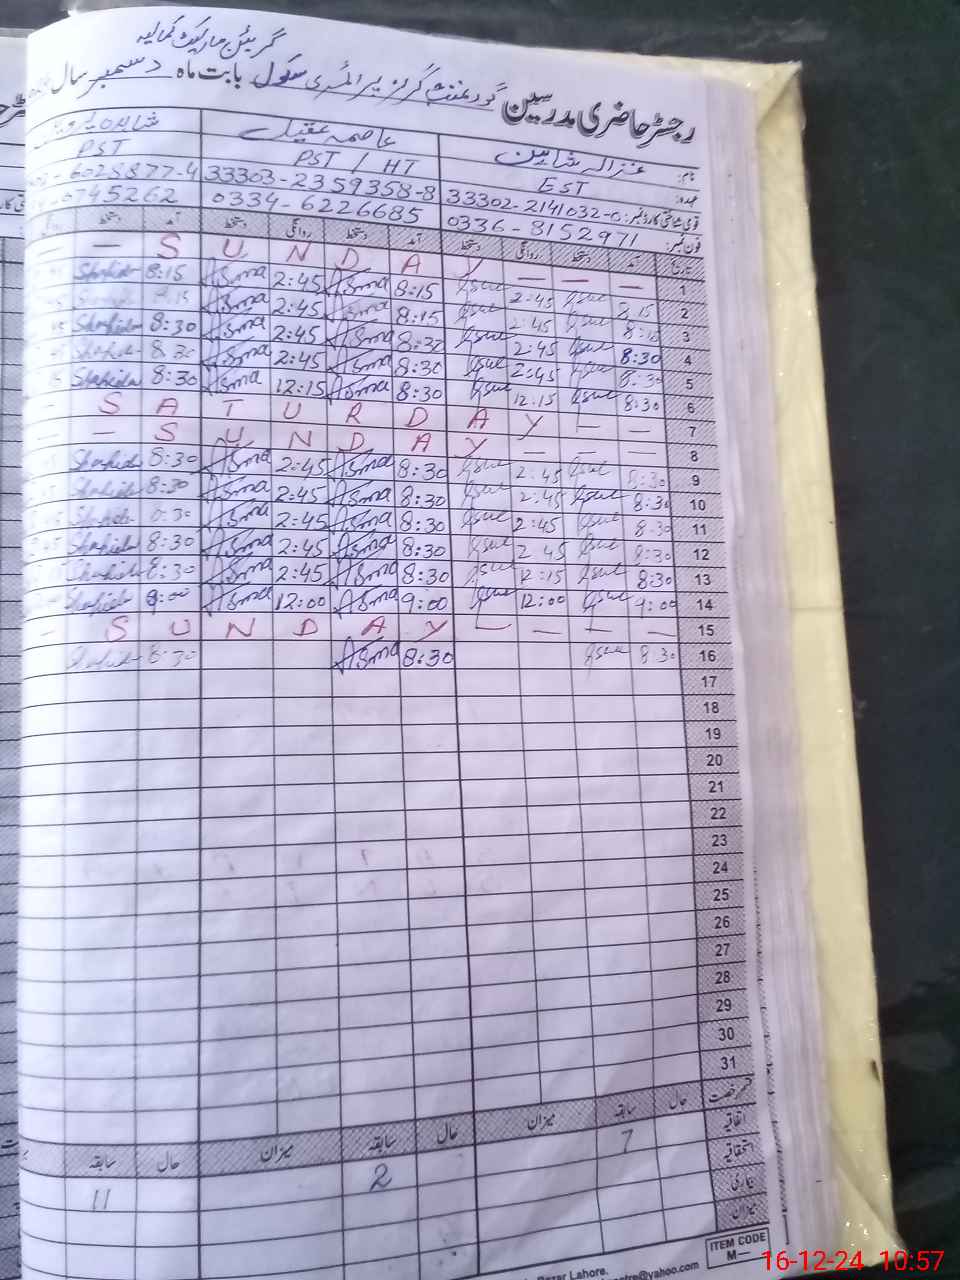 گرین مارکیٹ کمالیہ
رجسٹر حاضری مدرسین گورنمنٹ گرلز پرائمری سکول بابت ماہ دسمبر سال
نام: غزالہ شاہین عاصمہ عقیل
عہدہ: EST PST / HT PST
قومی شناختی کارڈ نمبر: 33302-2141032-0 33303-2359358-8 6025877-4
فون نمبر: 0336-8152971 0334-6226685 0745262
تاریخ آمد دستخط روانگی دستخط آمد دستخط روانگی دستخط آمد دستخط روانگی
1 — — — S U N D A Y —
2 8:15 2:45 8:15 Asma 2:45 Asma 8:15 Shahida
3 8:15 2:45 8:15 Asma 2:45 Asma 8:15 Shahida
4 8:30 2:45 8:30 Asma 2:45 Asma 8:30 Shahida
5 8:30 2:45 8:30 Asma 2:45 Asma 8:30 Shahida
6 8:30 12:15 8:30 Asma 12:15 Asma 8:30 Shahida
7 — — S A T U R D A Y —
8 — — — S U N D A Y — —
9 8:30 2:45 8:30 Asma 2:45 Asma 8:30 Shahida
10 8:30 2:45 8:30 Asma 2:45 Asma 8:30 Shahida
11 8:30 2:45 8:30 Asma 2:45 Asma 8:30 Shahida
12 8:30 2:45 8:30 Asma 2:45 Asma 8:30 Shahida
13 8:30 12:15 8:30 Asma 2:45 Asma 8:30 Shahida
14 9:00 12:00 9:00 Asma 12:00 Asma 9:00 Shahida
15 — — — — S U N D A Y —
16 8:30 8:30 Asma 8:30 Shahida
17
18
19
20
21
22
23
24
25
26
27
28
29
30
31
قسم رخصت حال سابقہ میزان حال سابقہ میزان حال سابقہ
اتفاقیہ 7 2 11
استحقاقیہ
بیماری
میزان
ITEM CODE
M—
Bazar Lahore.
@yahoo.com
16-12-24 10:57